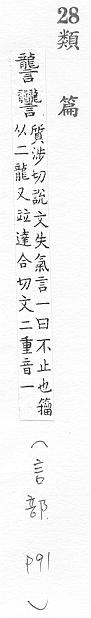 28
類篇
讋𧮩
質涉切說文失氣言一曰不止也籀
从二龍又竝達合切文二重音一
（言部 P91）